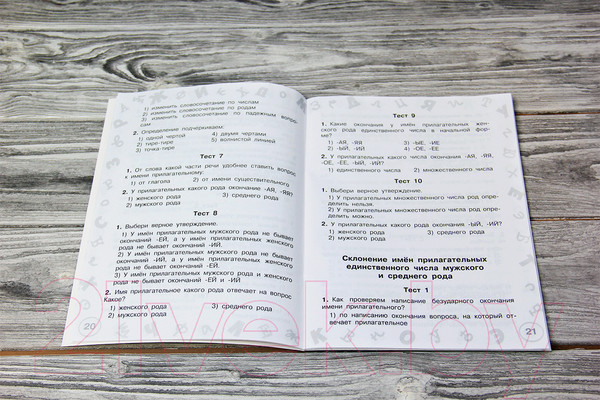 1) изменить словосочетание по числам
2) изменить словосочетание по родам
3) изменить словосочетание по падежным вопро-
сам
2. Определение подчёркиваем:
1) одной чертей
4) двумя чертами
2) тире-тире
5) волнистой линией
3) точка-тире
Тест 7
1. От слова какой части речи удобнее ставить вопрос
к имени прилагательному:
1) от глагола
2) от имени существительного
2. У прилагательных какого рода окончание -АЯ, -ЯЯ?
1) женского рода
3) среднего рода
2) мужского рода
Тест 8
1. Выбери верное утверждение.
1) У имён прилагательных мужского рода не бывает
окончаний -ЕЙ, а у имён прилагательных женского
рода не бывает окончаний -ИЙ.
2) У имён прилагательных мужского рода не бывает
окончаний -ИЙ, а у имён прилагательных женского
рода не бывает окончаний -ЕЙ.
3) У имён прилагательных мужского рода и женского
рода не бывает окончаний -ЕЙ и -ИЙ
2. Имя прилагательное какого рода отвечает на вопрос
Какое?
1) женского рода
3) среднего рода
2) мужского рода
20
Тест 9
1. Какие окончания у имён прилагательных жен-
ского рода единственного числа в начальной фор-
ме?
1) -АЯ, -ЯЯ
3) -ЫЕ, -ИЕ
2) -ЫЙ, -ИЙ
4) -ОЕ, -ЕЕ
2. У прилагательных какого числа окончания -АЯ, -ЯЯ,
-ОЕ, -ЕЕ, -ЫЙ, -ИЙ?
1) единственного числа
2) множественного числа
Тест 10
1. Выбери верное утверждение:
1) У прилагательных множественного числа род опре-
делить нельзя.
2) У прилагательных множественного числа род опре-
делить можно.
2. У прилагательных какого рода окончания -ЫЙ, -ИЙ?
1) женского рода
3) среднего рода
2) мужского рода
Склонение имён прилагательных
единственного числа мужского
и среднего рода
Тест 1
1. Как проверяем написание безударного окончания
имени прилагательного?
1) по написанию окончания вопроса, на который от-
вечает прилагательное
21